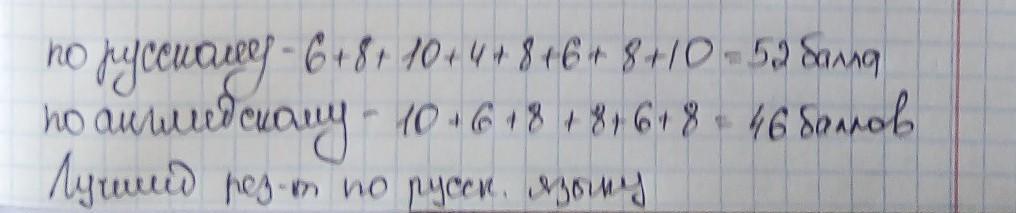 по русскому - 6+8+10+4+8+6+8+10=52 балла
по английскому - 10+6+8+8+6+8=46 баллов
Лучший рез-т по русск. языку